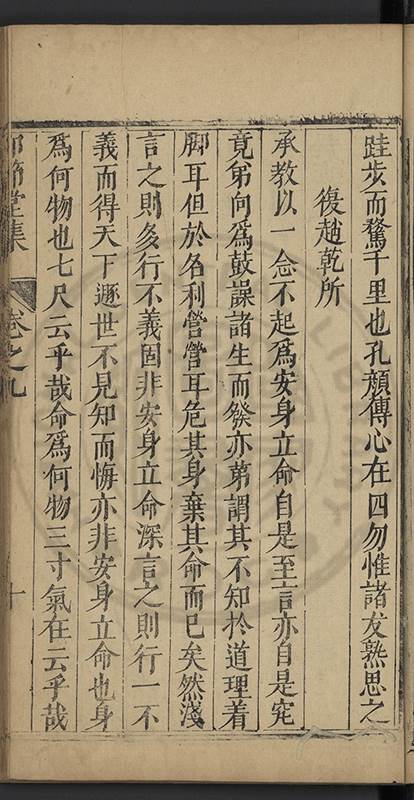 跬步而驁千里也孔顏傳心在四勿惟諸友熟思之
復趙乾所
承教以一念不起爲安身立命自是至言亦自是究
竟弟向爲鼓譟諸生而發亦第謂其不知扵道理着
脚耳但於名利營營耳危其身棄其命而已矣然淺
言之則多行不義固非安身立命深言之則行一不
義而得天下遯世不見知而悔亦非安身立命也身
爲何物也七尺云乎哉命爲何物三寸氣在云乎哉
節堂集
卷之九
十